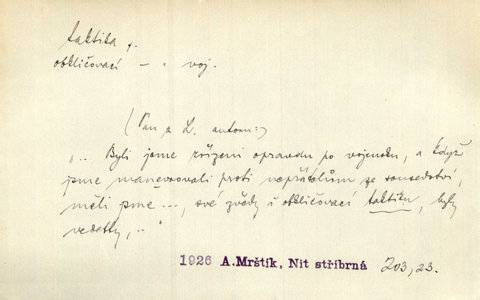 taktika, f.
obkličovací – . voj.
(Pan z L. autom:)
„.. Byli jsme zřízeni opravdu po vojensku, a když
jsme manevrovali proti nepřátelům ze sousedství,
měli jsme ..., své zvědy i obkličovací taktiku, byly
vedetky, .. "
1926 A.Mrštík, Nit stříbrná 203,23.